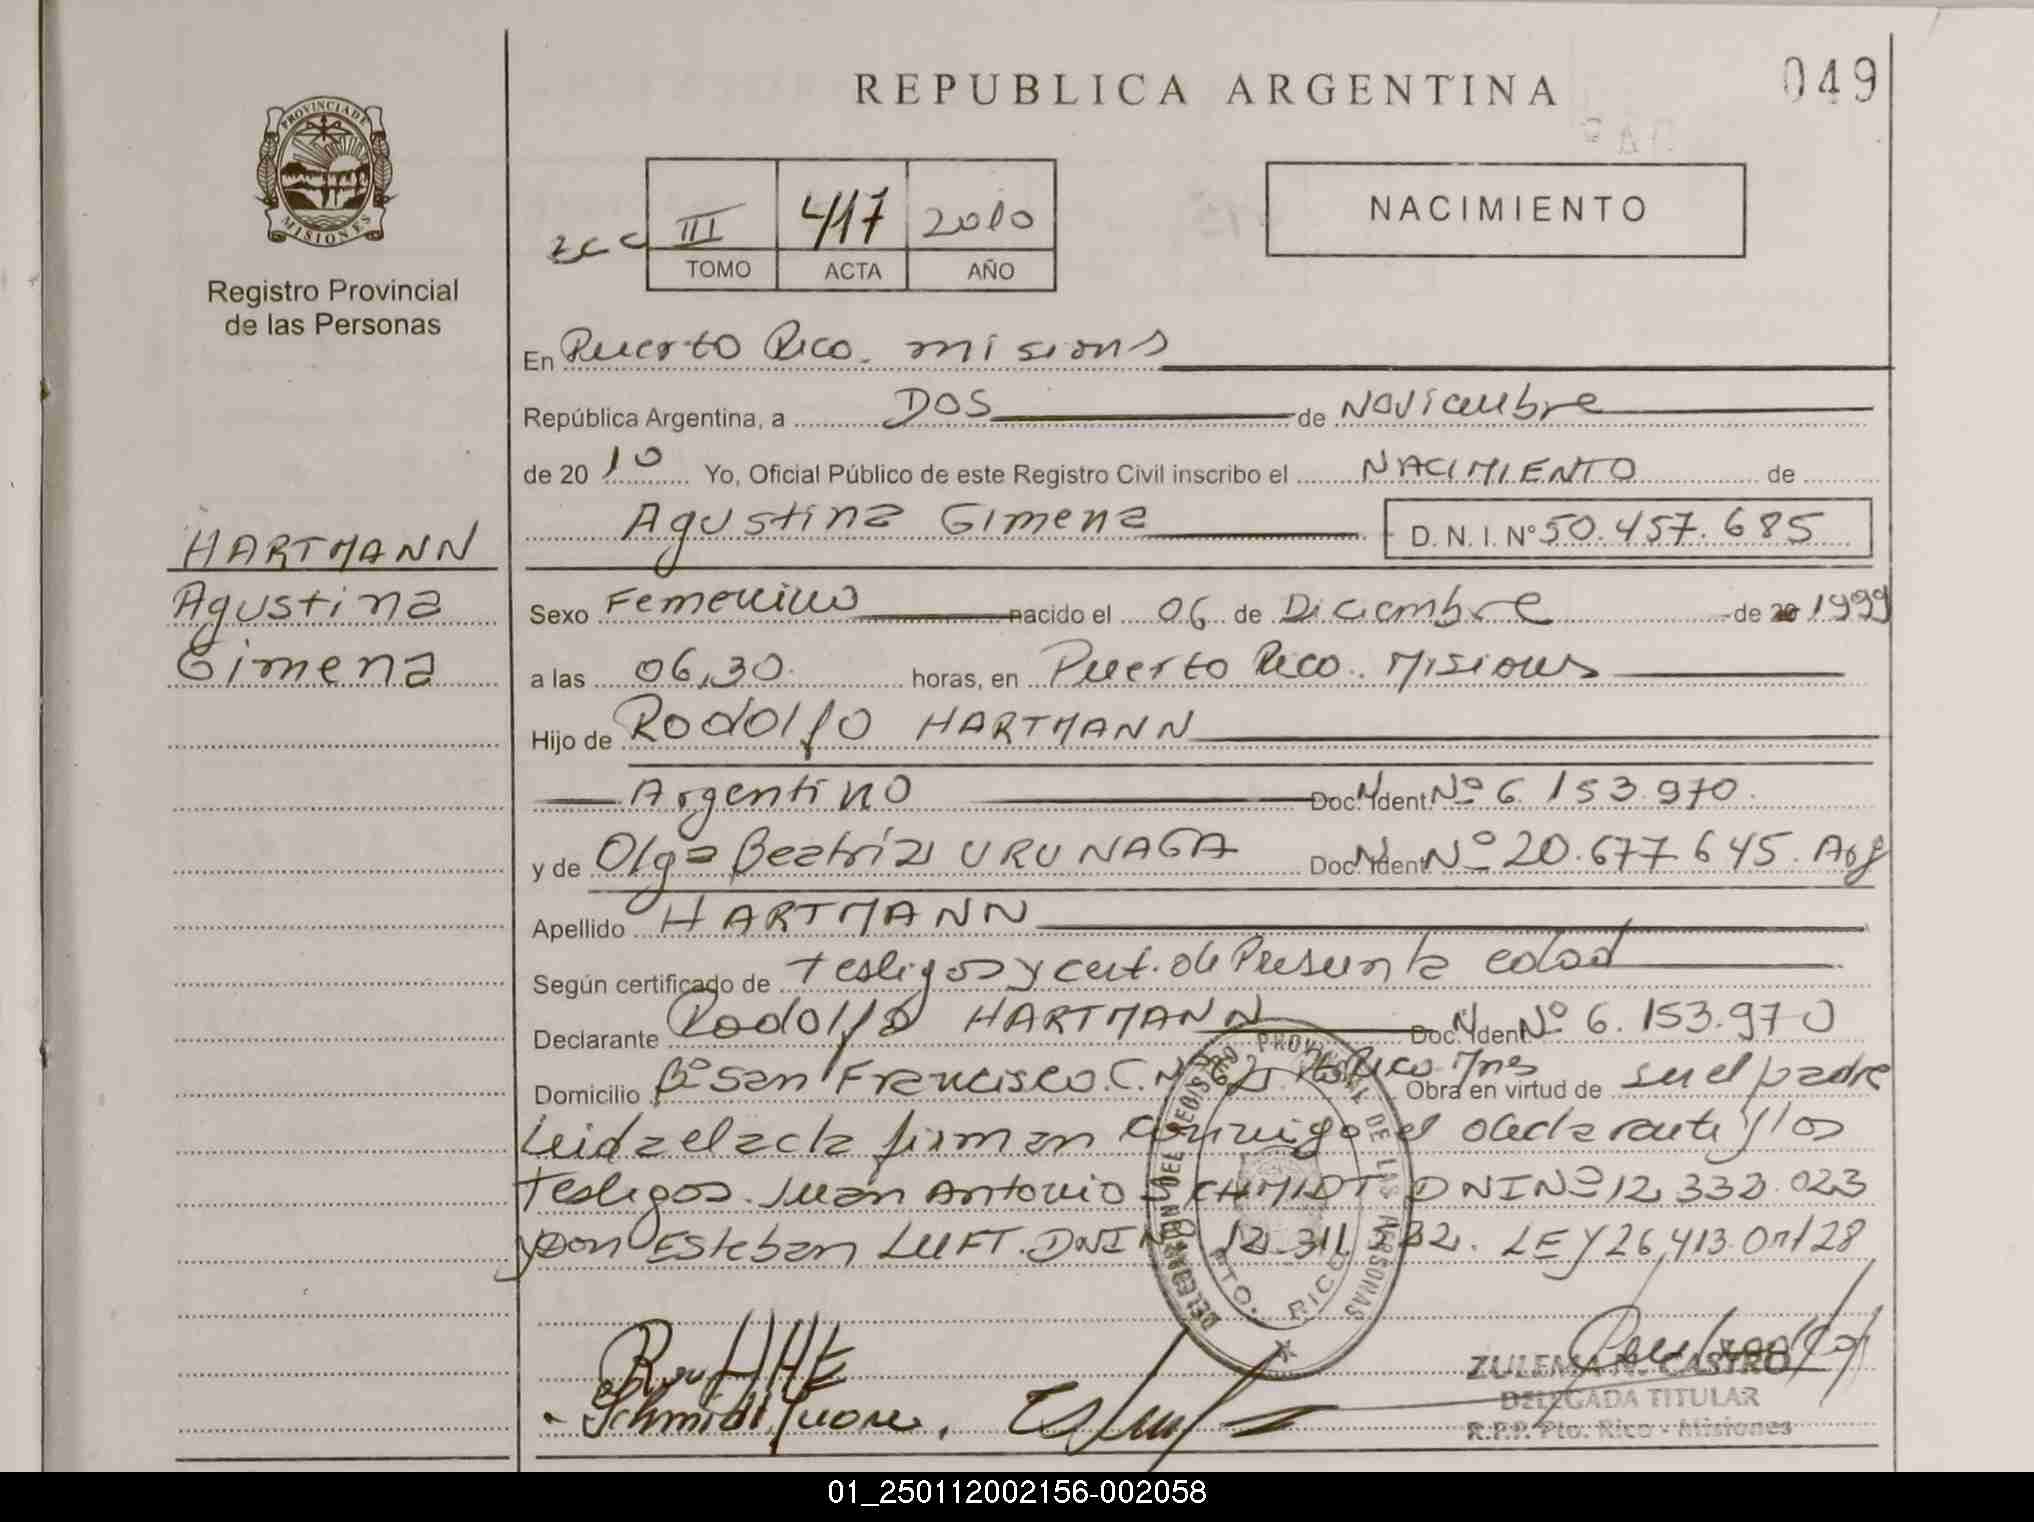 REPUBLICA ARGENTINA
049
PROVINCIA DE
MISIONES
Registro Provincial
de las Personas
III 417 2010
TOMO ACTA AÑO
NACIMIENTO
En Puerto Rico. misions
República Argentina, a DOS de Noviembre
de 2010 Yo, Oficial Público de este Registro Civil inscribo el NACIMIENTO de
Agustina Gimena D. N. I. Nº 50.457.685
HARTMANN
Agustina
Gimena
Sexo Femenino nacido el 06 de Diciembre de 20 1999
a las 06,30 horas, en Puerto Rico. Misiones
Hijo de Rodolfo HARTMANN
Argentino Doc. Ident Nº 6.153.970.
y de Olga Beatriz URUNAGA Doc. Ident Nº 20.677.645. Arg
Apellido HARTMANN
Según certificado de Testigos y cert. de Presunta edad
Declarante Rodolfo HARTMANN Doc. Ident Nº 6.153.970
Domicilio Bº San Francisco. C. Nº Rico Mns Obra en virtud de ser el padre
Leida el acta firman conmigo el declarante y los
Testigos. Juan Antonio SCHMIDT DNI Nº 12.332.023
y don Esteban LUFT. DNI Nº 12.311. LEY 26,413 Art 28
DELEGACION DEL REGISTRO PROVINCIAL DE LAS PERSONAS
PTO. RICO
Schmidt Juan
ZULEMA N. CASTRO
DELEGADA TITULAR
R.P.P. Pto. Rico - Misiones
01_250112002156-002058